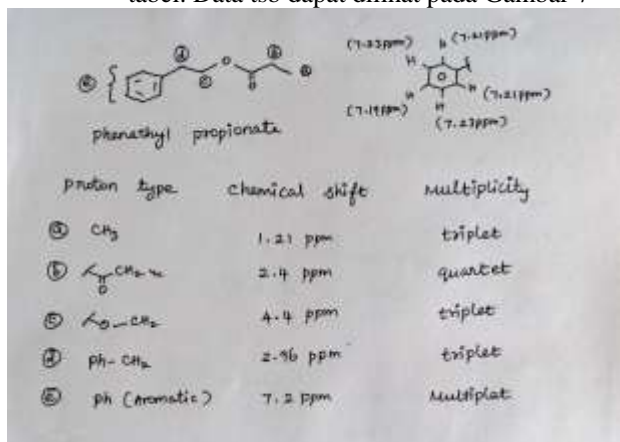 tabel. Data tsb dapat dilihat pada Gambar 7
(7.23ppm) H (7.21ppm)
ⓓ O ⓑ
ⓔ { ⓒ O ⓐ
H H
(7.21ppm)
(7.19ppm) H
(7.23ppm)
phenathyl propionate
Proton type chemical shift Multiplicity
ⓐ CH3 1.21 ppm triplet
ⓑ CH2 2.4 ppm quartet
O
ⓒ O-CH2 4.4 ppm triplet
ⓓ Ph-CH2 2.96 ppm triplet
ⓔ Ph (Aromatic) 7.2 ppm Multiplet